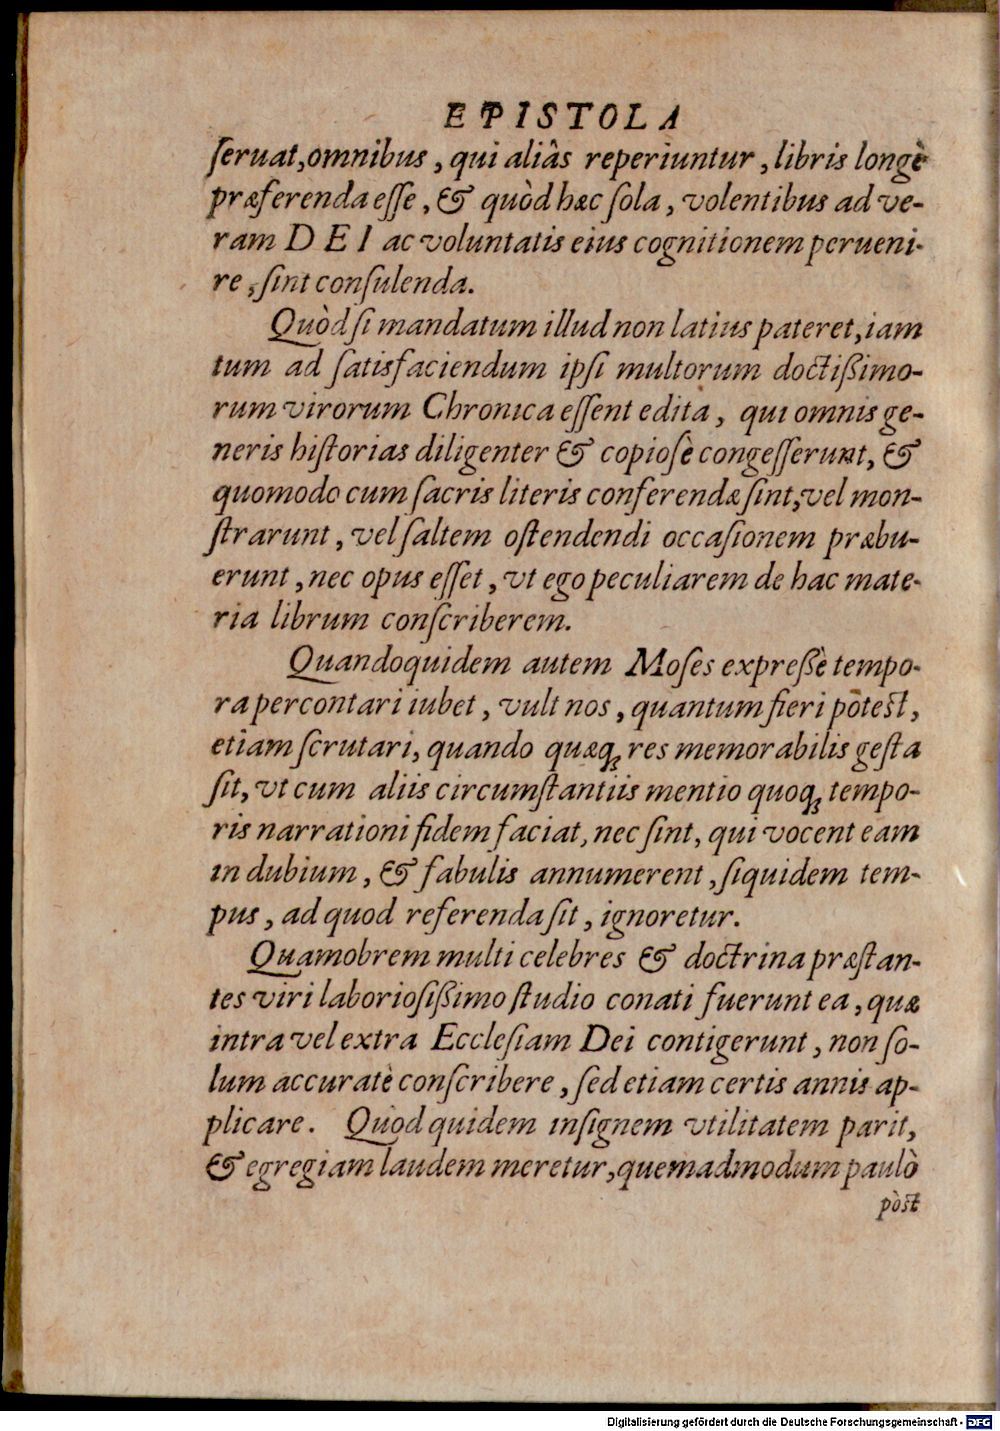 EPISTOLA
ſeruat, omnibus, qui aliâs reperiuntur, libris longè
præferenda eſſe, & quòd hæc ſola, volentibus ad ve-
ram DEI ac voluntatis eius cognitionem perueni-
re, ſint conſulenda.
Quòd ſi mandatum illud non latius pateret, iam
tum ad ſatisfaciendum ipſi multorum doctißimo-
rum virorum Chronica eſſent edita, qui omnis ge-
neris hiſtorias diligenter & copioſè congeſſerunt, &
quomodo cum ſacris literis conferendæ ſint, vel mon-
ſtrarunt, vel ſaltem oſtendendi occaſionem præbu-
erunt, nec opus eſſet, vt ego peculiarem de hac mate-
ria librum conſcriberem.
Quandoquidem autem Moſes expreßè tempo-
ra percontari iubet, vult nos, quantum fieri potest,
etiam ſcrutari, quando quæq; res memorabilis geſta
ſit, vt cum aliis circumſtantiis mentio quoq; tempo-
ris narrationi fidem faciat, nec ſint, qui vocent eam
in dubium, & fabulis annumerent, ſiquidem tem-
pus, ad quod referenda ſit, ignoretur.
Quamobrem multi celebres & doctrina præſtan-
tes viri laborioſißimo ſtudio conati fuerunt ea, quæ
intra vel extra Eccleſiam Dei contigerunt, non ſo-
lum accuratè conſcribere, ſed etiam certis annis ap-
plicare. Quod quidem inſignem vtilitatem parit,
& egregiam laudem meretur, quemadmodum paulò
pòst
Digitalisierung gefördert durch die Deutsche Forschungsgemeinschaft - DFG